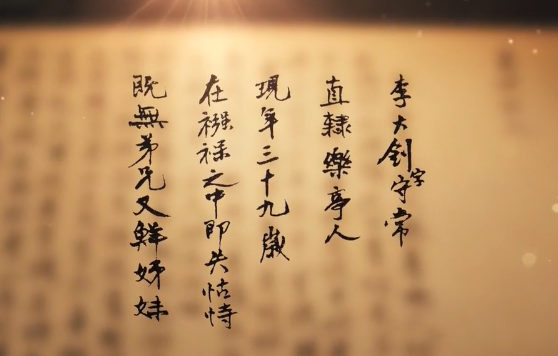 李大剑字守常
直隸樂亭人
現年三十九歲
在襁褓之中即失怙恃
既無弟兄又鮮姊妹